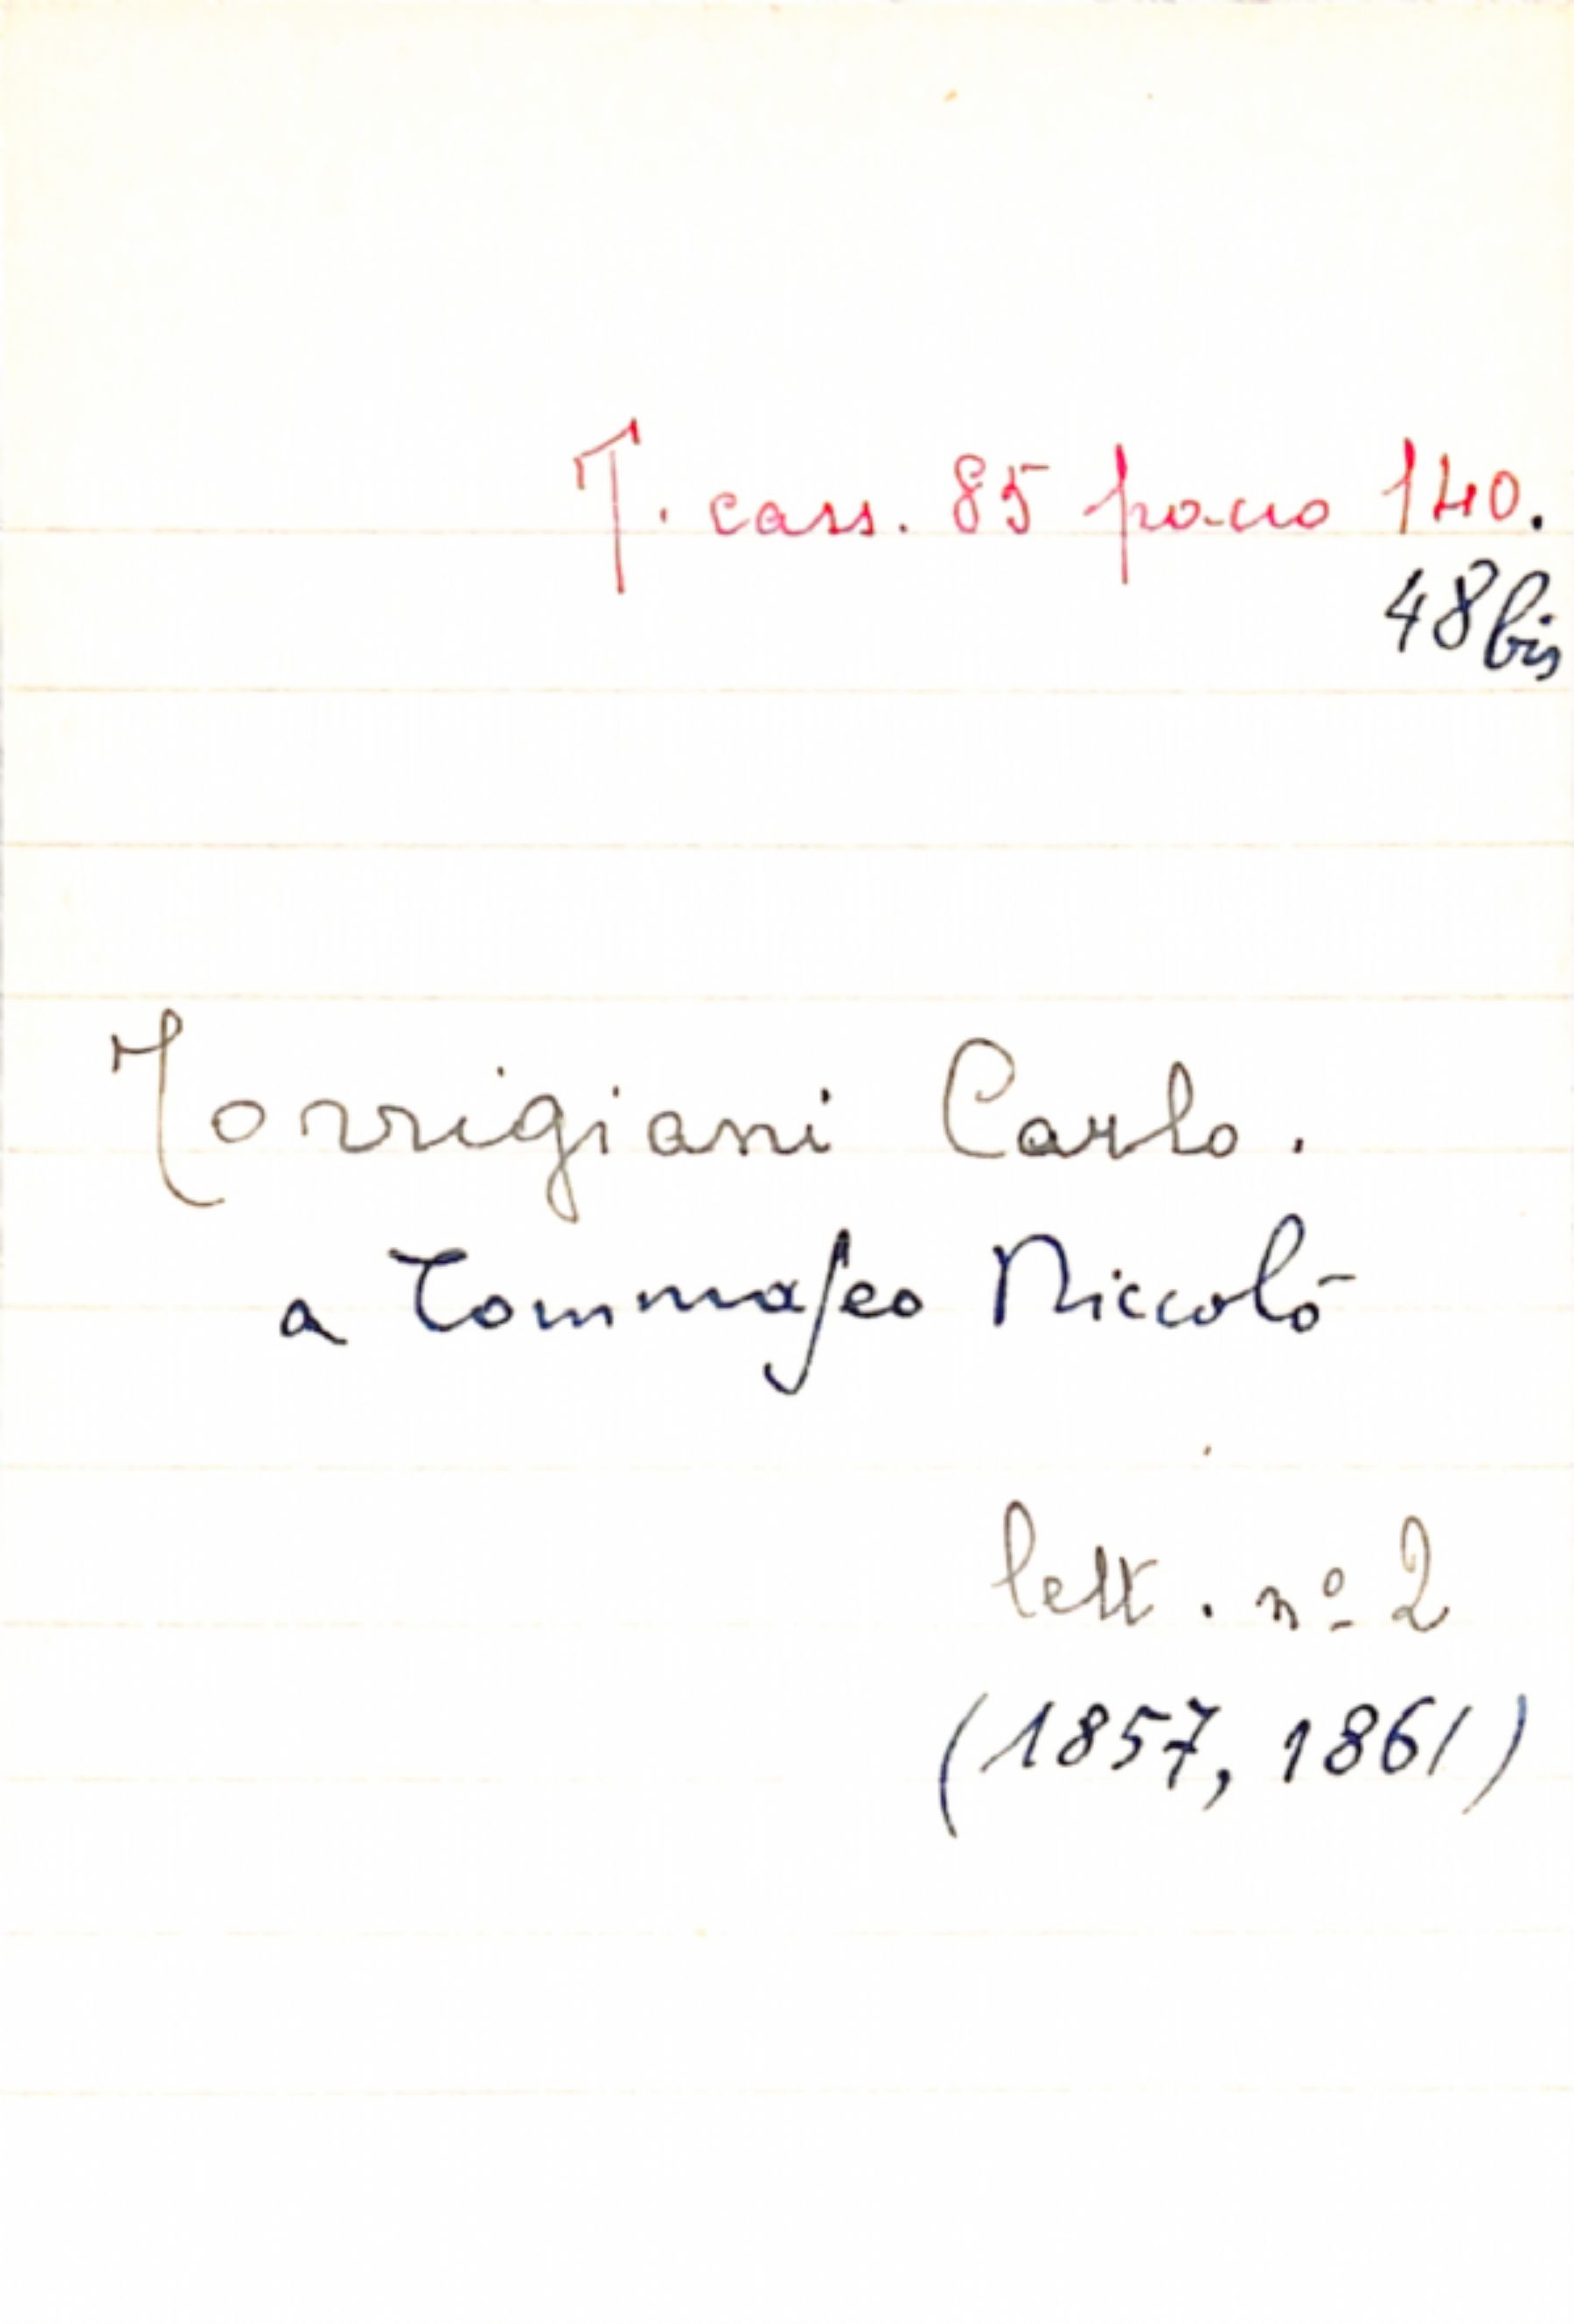 T. cass. 85 pacco 140.
48bis
Torrigiani Carlo.
a Tommaseo Niccolò
lett. nº 2
(1857, 1861)